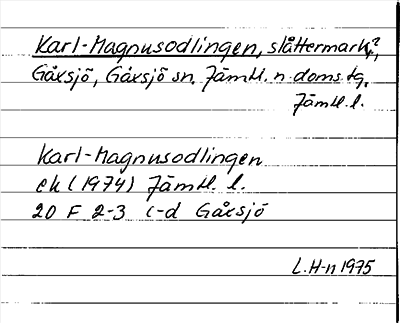 Karl-Magnusodlingen, slåttermark?,
Gåxsjö, Gåxsjö sn. Jämtl. n. doms.tg.
Jämtl. l.
Karl-Magnusodlingen
ek (1974) Jämtl. l.
20 F 2-3 c-d Gåxsjö
L. H-n 1975